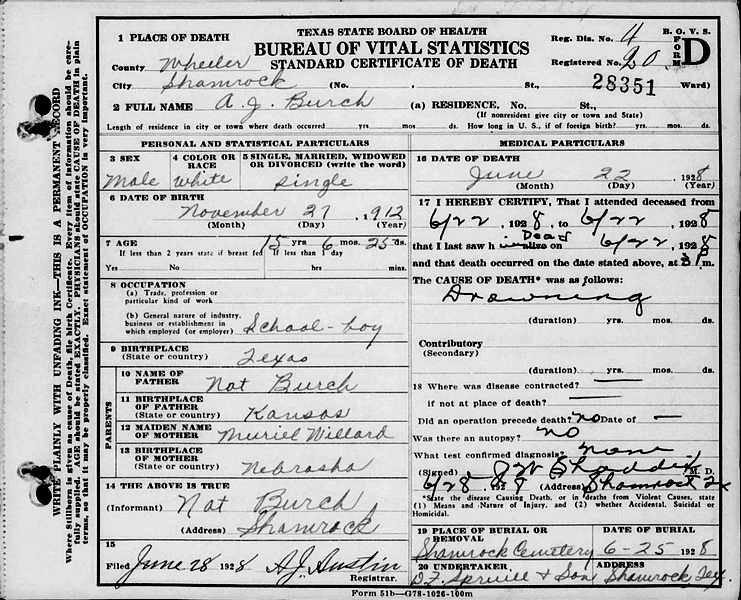 TEXAS STATE BOARD OF HEALTH
BUREAU OF VITAL STATISTICS
STANDARD CERTIFICATE OF DEATH
Reg. Dis. No. 4
B. O. V. S.
FORM D
Registered No. 20
28351
1 PLACE OF DEATH
County Wheeler
City Shamrock (No. , St., Ward)
2 FULL NAME A. J. Burch (a) RESIDENCE, No. St.,
(If nonresident give city or town and State)
Length of residence in city or town where death occurred yrs. mos. ds. How long in U. S., if of foreign birth? yrs. mos. ds.
WRITE PLAINLY WITH UNFADING INK—THIS IS A PERMANENT RECORD
Where Stillborn is given as cause of Death, file birth Certificate. Every item of Information should be care-
fully supplied. AGE should be stated EXACTLY. PHYSICIANS should state CAUSE OF DEATH in plain
terms, so that it may be properly classified. Exact statement of OCCUPATION is very important.
PERSONAL AND STATISTICAL PARTICULARS
3 SEX
Male
4 COLOR OR RACE
White
5 SINGLE, MARRIED, WIDOWED
OR DIVORCED (write the word)
Single
6 DATE OF BIRTH
November 27 1912
(Month) (Day) (Year)
7 AGE 15 yrs 6 mos. 25 ds.
If less than 2 years state if breast fed If less than 1 day
Yes No hrs. min.
8 OCCUPATION
(a) Trade, profession or
particular kind of work
(b) General nature of industry,
business or establishment in
which employed (or employer) School-boy
9 BIRTHPLACE
(State or country) Texas
PARENTS
10 NAME OF
FATHER Nat Burch
11 BIRTHPLACE
OF FATHER
(State or country) Kansas
12 MAIDEN NAME
OF MOTHER Muriel Willard
13 BIRTHPLACE
OF MOTHER
(State or country) Nebraska
14 THE ABOVE IS TRUE
(Informant) Nat Burch
(Address) Shamrock
15
Filed June 28 1928 A J Austin
Registrar.
MEDICAL PARTICULARS
16 DATE OF DEATH
June 22 1928
(Month) (Day) (Year)
17 I HEREBY CERTIFY, That I attended deceased from
6/22, 1928, to 6/22, 1928
Dead
that I last saw h alive on 6/22, 1928
and that death occurred on the date stated above, at P m.
The CAUSE OF DEATH* was as follows:
Drowning
(duration) yrs. mos. ds.
Contributory
(Secondary)
(duration) yrs. mos. ds.
18 Where was disease contracted? —
if not at place of death? —
Did an operation precede death? no Date of —
Was there an autopsy? no
What test confirmed diagnosis? none
(Signed) M. D.
6/28 28 (Address) Shamrock Tx
*State the disease Causing Death, or in deaths from Violent Causes, state
(1) Means and Nature of Injury, and (2) whether Accidental, Suicidal or
Homicidal.
19 PLACE OF BURIAL OR
REMOVAL
Shamrock Cemetery
DATE OF BURIAL
6-25 1928
20 UNDERTAKER
Spruill & Son
ADDRESS
Shamrock, Tex.
Form 51b—G78-1026-100m